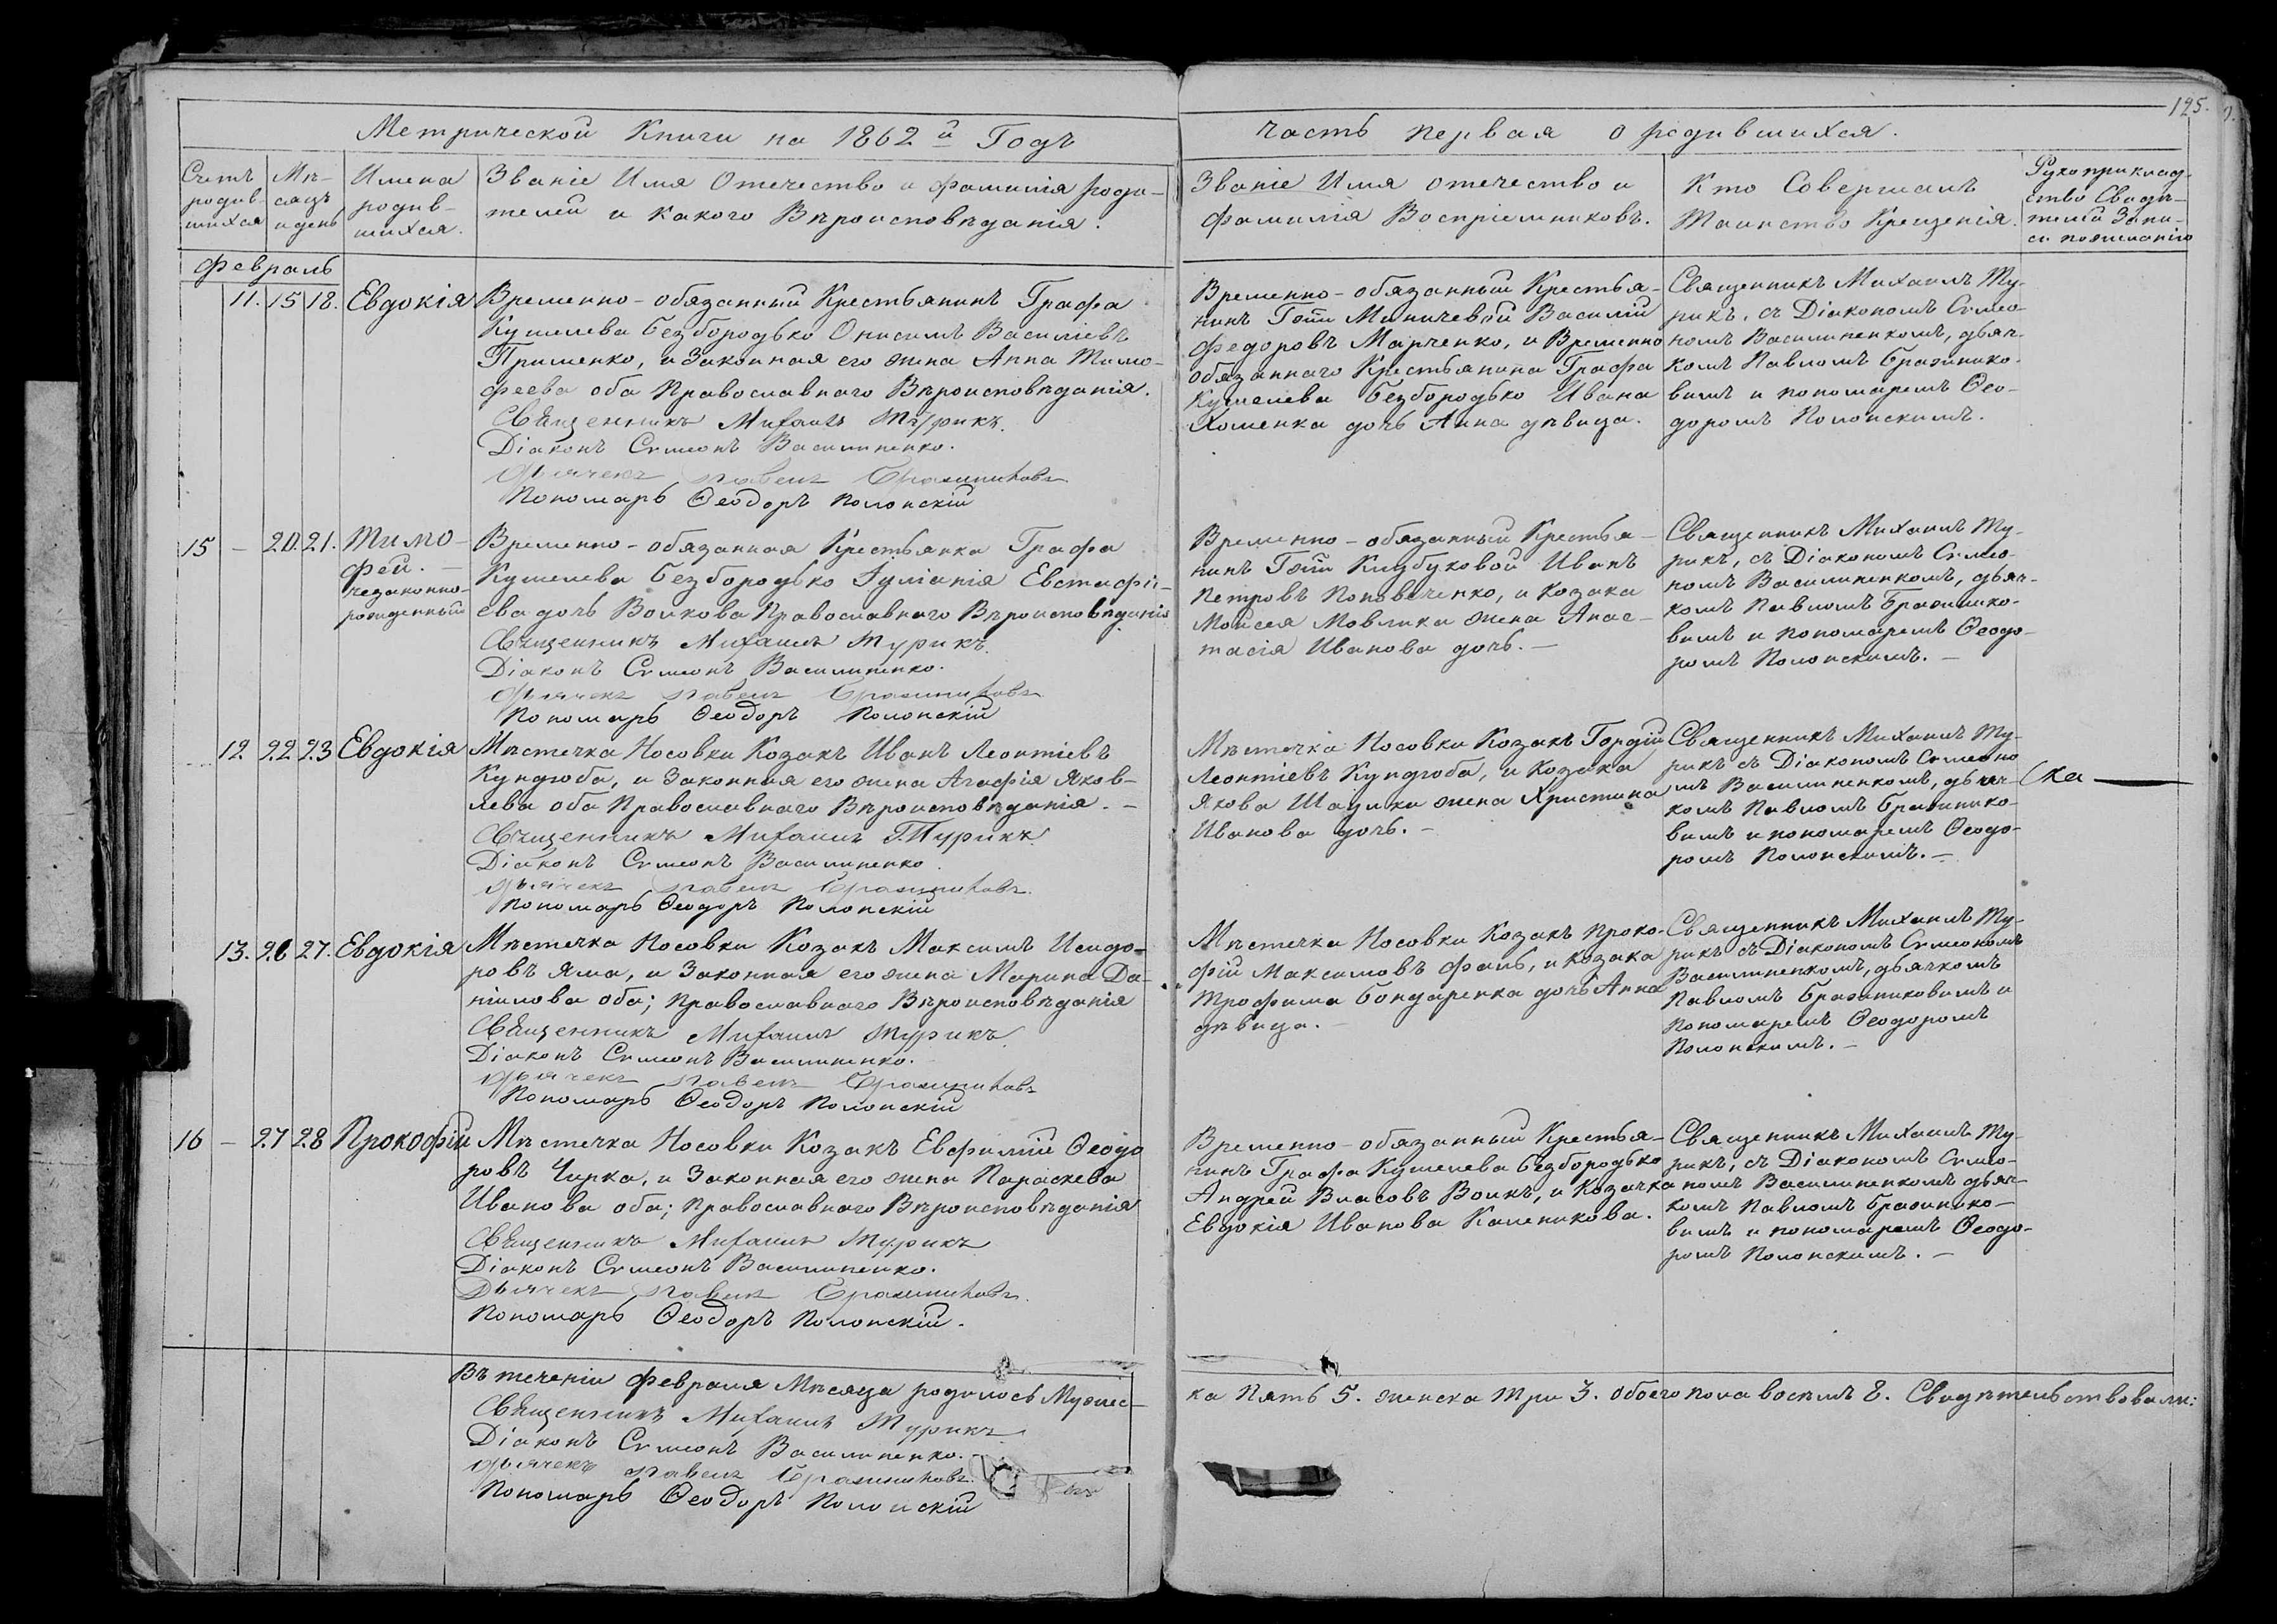 125.
Метрической Книги на 1862й Годъ
Часть первая о родившихся.
Счетъ родив- шихся
Мѣ- сяцъ и день
Имена родив- шихся.
Званіе Имя Отечество и фамилія роди-
телей и какого Вѣроисповѣданія.
Званіе Имя отечество и
фамилія Воспріемниковъ.
Кто Совершалъ
Таинство Крещенія.
Рукоприклад-
ство Свидѣ-
телей Запи-
си по желанію
Февраль
11. 15 18. Евдокія
Временно-обязанный Крестьянинъ Графа
Кушелева Безбородько Онисимъ Василіевъ
Применко, и Законная его жена Анна Тимо-
феева оба Православнаго Вѣроисповѣданія.
Священникъ Михаилъ Турикъ.
Діаконъ Сѵмеонъ Василиненко.
Дьячекъ Павелъ Бражниковъ
Пономарь Ѳеодоръ Полонскій
Временно-обязанный Крестья-
нинъ Гжи Миничевой Василій
Федоровъ Марченко, и Временно
обязаннаго Крестьянина Графа
Кушелева Безбородько Ивана
Хоменка дочь Анна дѣвица.
Священникъ Михаилъ Ту-
рикъ, съ Діакономъ Сѵмео-
номъ Василиненкомъ, дьяч-
комъ Павломъ Бражнико-
вимъ и пономаремъ Ѳео-
доромъ Полонскимъ.
15 – 20. 21. Тимо-
фей. –
незаконно-
рожденный
Временно-обязанная Крестьянка Графа
Кушелева Безбородько Іуліанія Евстафі-
ева дочь Волкова Православнаго Вѣроисповѣданія
Священникъ Михаилъ Турикъ.
Діаконъ Сѵмеонъ Василиненко.
Дьячекъ Павелъ Бражниковъ
Пономарь Ѳеодоръ Полонскій
Временно-обязанный Крестья-
нинъ Гжи Иванъ
Петровъ Поповиченко, и Козака
Моисея Мовлика жена Анас-
тасія Иванова дочь. –
Священникъ Михаилъ Ту-
рикъ, съ Діакономъ Сѵмео-
номъ Василиненкомъ, дьяч-
комъ Павломъ Бражнико-
вимъ и пономаремъ Ѳеодо-
ромъ Полонскимъ. –
12 22 23 Евдокія
Мѣстечка Носовки Козакъ Иванъ Леонтіевъ
Кундюба, и Законная его жена Агафія Яков-
лева оба Православнаго Вѣроисповѣданія. –
Священникъ Михаилъ Турикъ
Діаконъ Сѵмеонъ Василиненко.
Дьячекъ Павелъ Бражниковъ.
Пономарь Ѳеодоръ Полонскій
Мѣстечка Носовки Козакъ Гордій
Леонтіевъ Кундюба, и Козака
Якова Шадлики жена Христина
Иванова дочь. –
Священникъ Михаилъ Ту-
рикъ съ Діакономъ Сѵмеоно
мъ Василиненкомъ, дьяч-
комъ Павломъ Бражнико-
вимъ и пономаремъ Ѳеодо-
ромъ Полонскимъ. –
13. 26 27. Евдокія
Мѣстечка Носовки Козакъ Максимъ Исидо-
ровъ Яма, и Законная его жена Марина Да-
ніилова оба; Православнаго Вѣроисповѣданія
Священникъ Михаилъ Турикъ
Діаконъ Сѵмеонъ Василиненко.
Дьячекъ Павелъ Бражниковъ
Пономарь Ѳеодоръ Полонскій
Мѣстечка Носовки Козакъ Проко-
фій Максимовъ Фань, и Козака
Трофима Бондаренка дочь Анна
дѣвица. –
Священникъ Михаилъ Ту-
рикъ съ Діакономъ Сѵмеономъ
Василиненкомъ, дьячкомъ
Павломъ Бражниковимъ и
Пономаремъ Ѳеодоромъ
Полонскимъ. –
16 – 27 28 Прокофій
Мѣстечка Носовки Козакъ Евфимій Ѳеодо
ровъ Чирка, и Законная его жена Параскева
Иванова оба; Православнаго Вѣроисповѣданія
Священникъ Михаилъ Турикъ
Діаконъ Сѵмеонъ Василиненко.
Дьячекъ Павелъ Бражниковъ.
Пономарь Ѳеодоръ Полонскій.
Временно-обязанный Крестья-
нинъ Графа Кушелева Безбородько
Андрей Власовъ Волкъ, и Козачка
Евдокія Иванова Каленикова.
Священникъ Михаилъ Ту-
рикъ, съ Діакономъ Сѵмео-
номъ Василиненкомъ дьяч-
комъ Павломъ Бражнико-
вимъ и пономаремъ Ѳеодо-
ромъ Полонскимъ. –
Въ теченіи Февраля Мѣсяца родилось Мужес-
ка Пять 5. женска три 3. обоего пола восемь 8. Свидѣтельствовали:
Священникъ Михаилъ Турикъ
Діаконъ Сѵмеонъ Василиненко.
Дьячекъ Павелъ Бражниковъ.
Пономарь Ѳеодоръ Полонскій